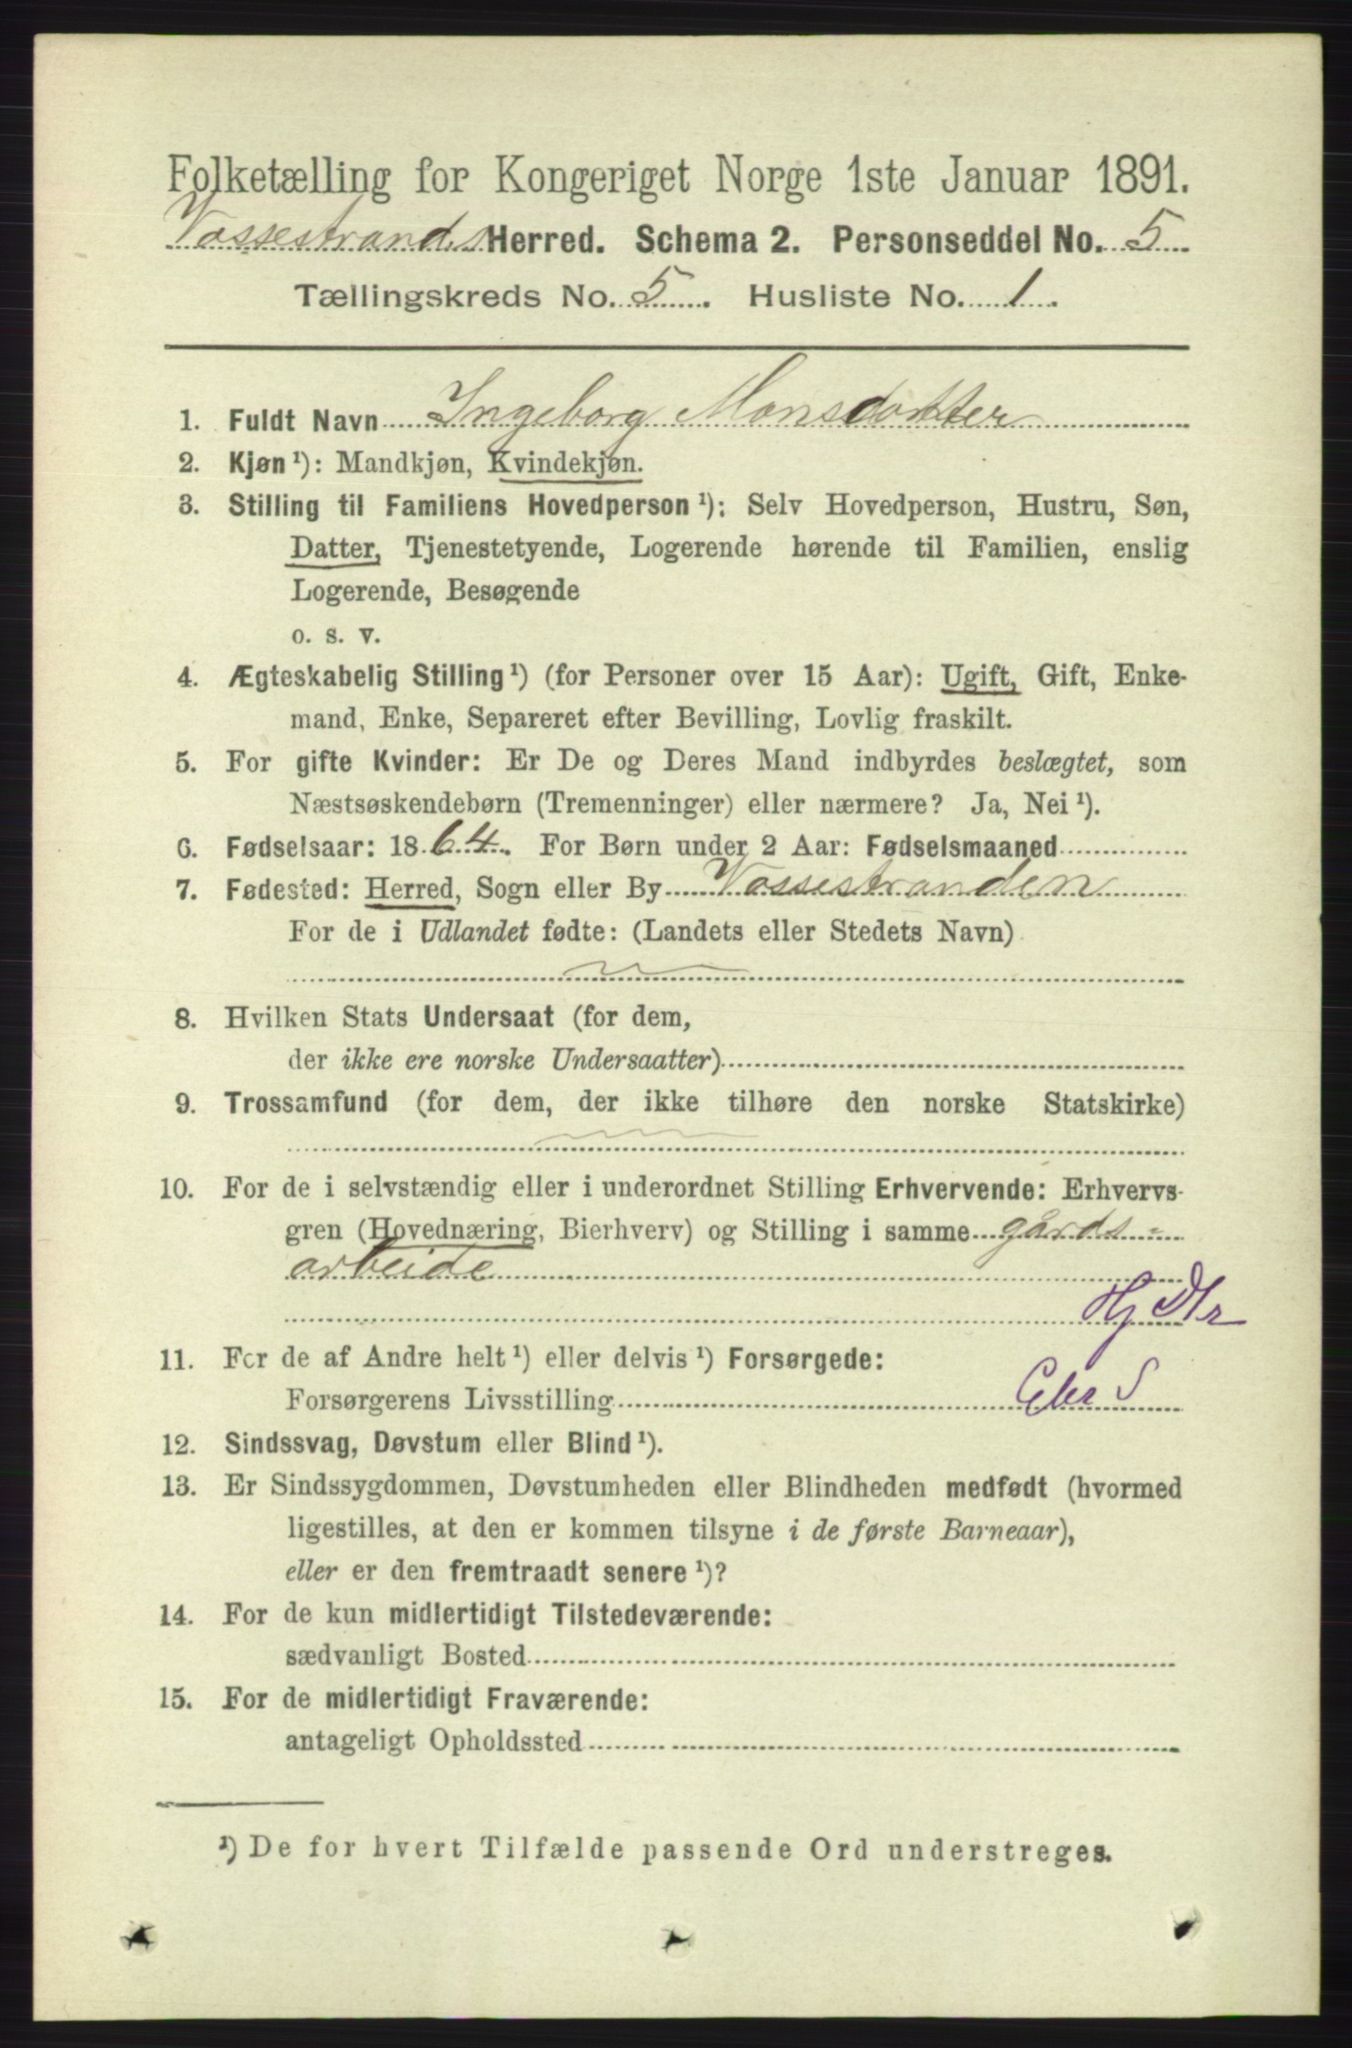 Folketælling for Kongeriget Norge 1ste Januar 1891.
Vossestrands Herred. Schema 2. Personseddel No. 5
Tællingskreds No. 5. Husliste No. 1.
1. Fuldt Navn Ingeborg Monsdatter
2. Kjøn ¹): Mandkjøn, Kvindekjøn.
3. Stilling til Familiens Hovedperson ¹): Selv Hovedperson, Hustru, Søn,
Datter, Tjenestetyende, Logerende hørende til Familien, enslig
Logerende, Besøgende
o. s. v.
4. Ægteskabelig Stilling ¹) (for Personer over 15 Aar): Ugift, Gift, Enke-
mand, Enke, Separeret efter Bevilling, Lovlig fraskilt.
5. For gifte Kvinder: Er De og Deres Mand indbyrdes beslægtet, som
Næstsøskendebørn (Tremenninger) eller nærmere? Ja, Nei ¹).
6. Fødselsaar: 1864. For Børn under 2 Aar: Fødselsmaaned
7. Fødested: Herred, Sogn eller By Vossestranden
For de i Udlandet fødte: (Landets eller Stedets Navn)
8. Hvilken Stats Undersaat (for dem,
der ikke ere norske Undersaatter)
9. Trossamfund (for dem, der ikke tilhøre den norske Statskirke)
10. For de i selvstændig eller i underordnet Stilling Erhvervende: Erhvervs-
gren (Hovednæring, Bierhverv) og Stilling i samme gårds-
arbeide
Hj
11. For de af Andre helt ¹) eller delvis ¹) Forsørgede:
Forsørgerens Livsstilling
12. Sindssvag, Døvstum eller Blind ¹).
13. Er Sindssygdommen, Døvstumheden eller Blindheden medfødt (hvormed
ligestilles, at den er kommen tilsyne i de første Barneaar),
eller er den fremtraadt senere ¹)?
14. For de kun midlertidigt Tilstedeværende:
sædvanligt Bosted
15. For de midlertidigt Fraværende:
antageligt Opholdssted
¹) De for hvert Tilfælde passende Ord understreges.